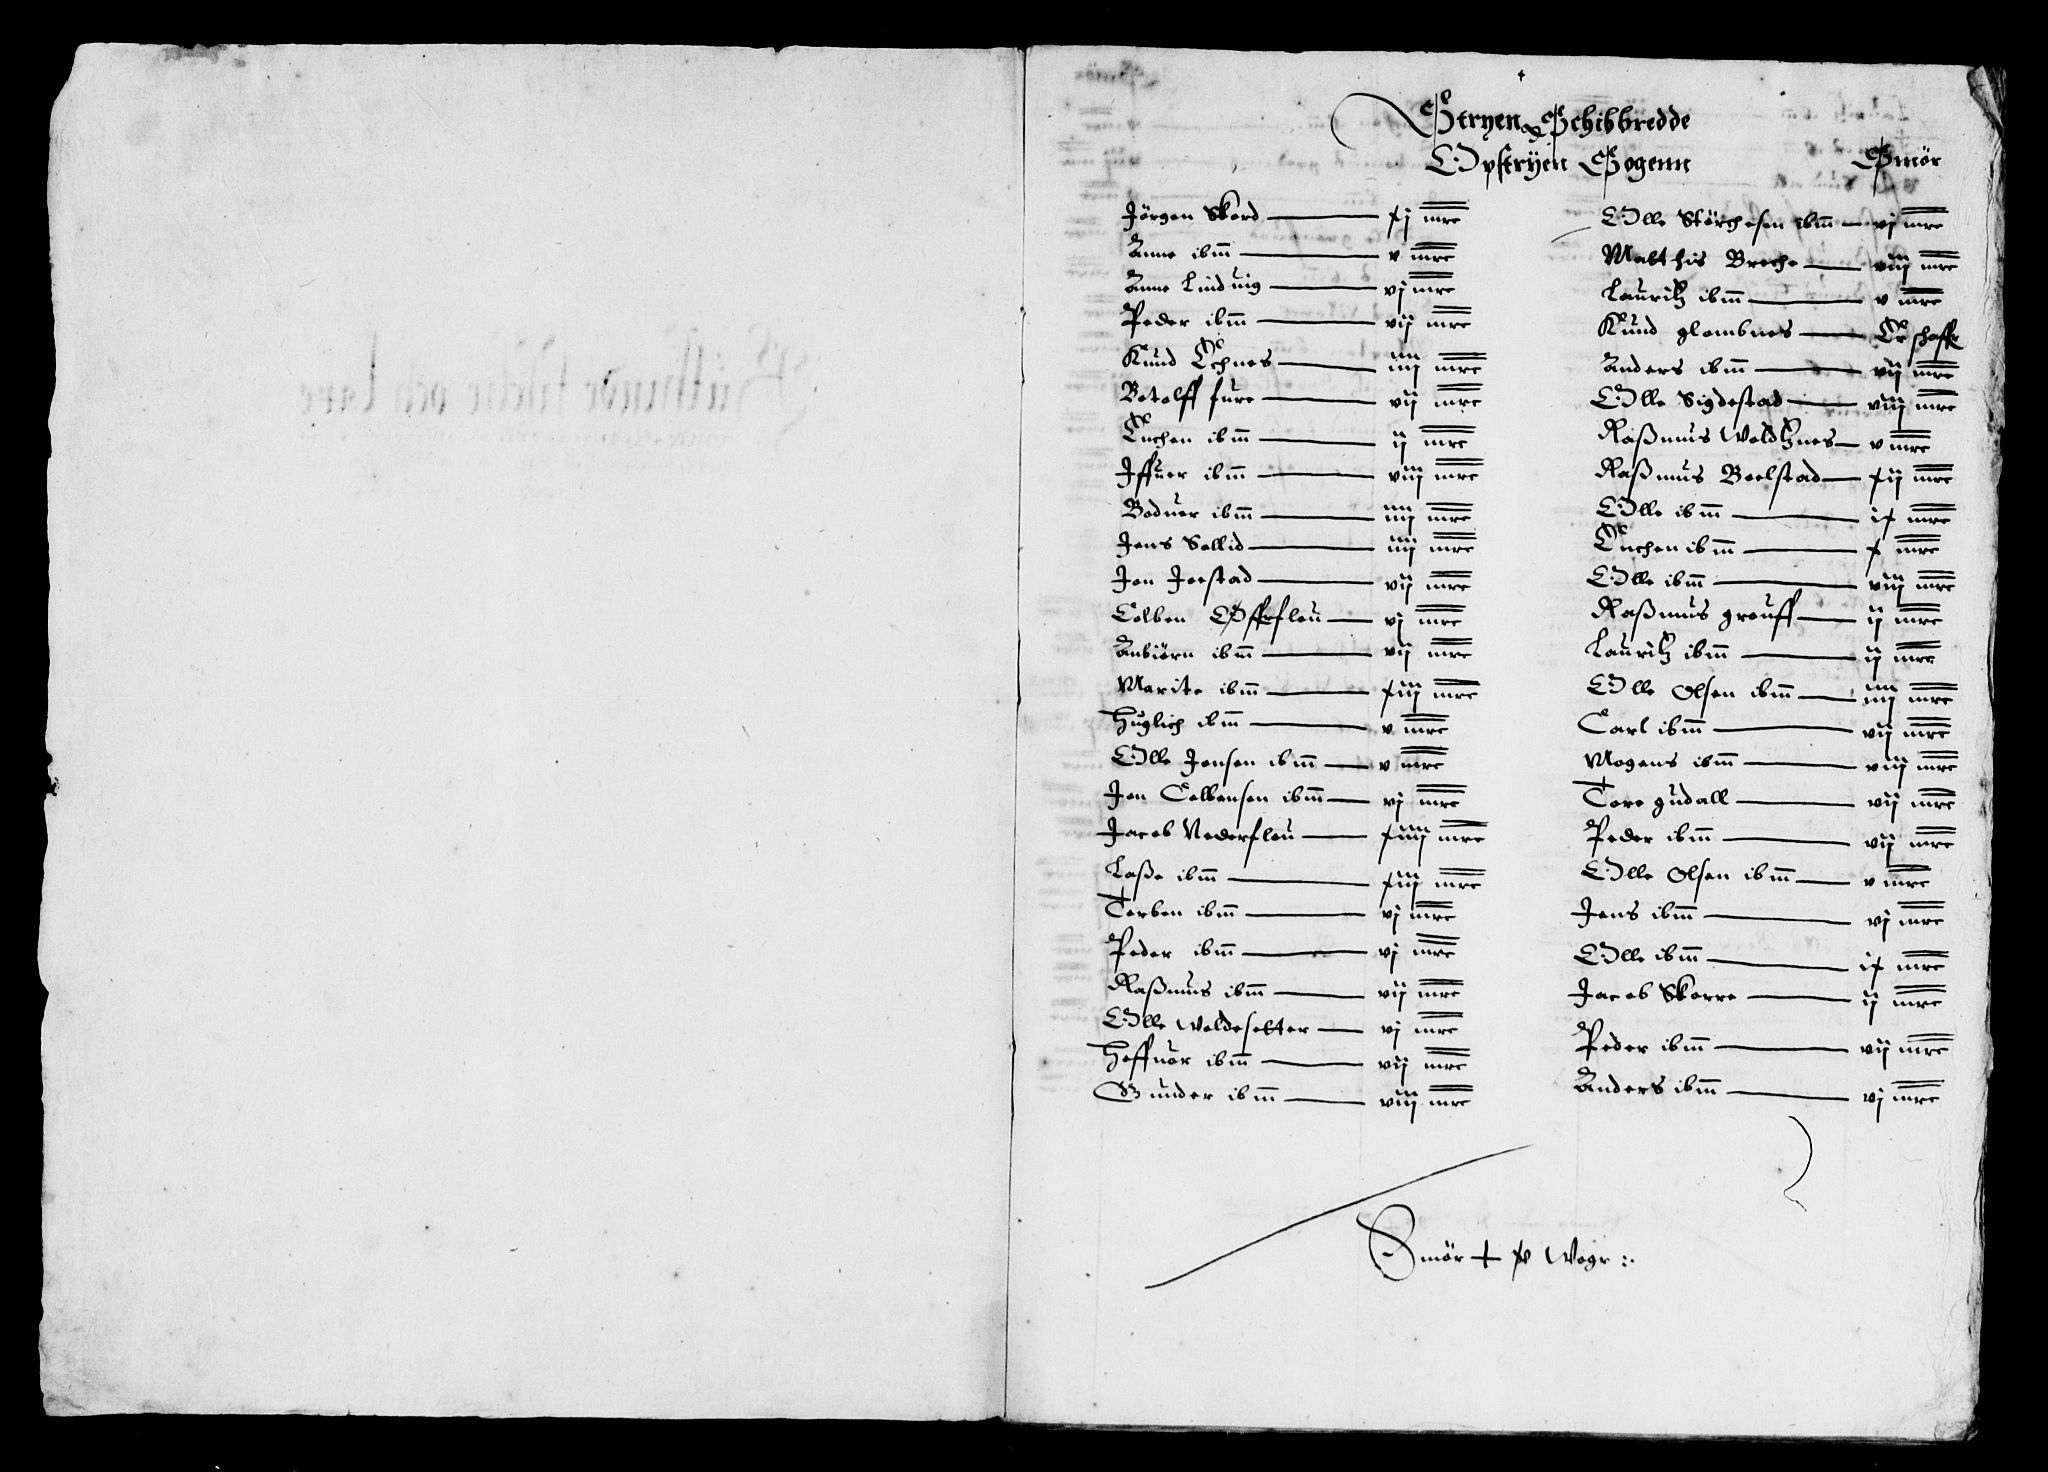 Stryen Schibbredde
Opstryen Sogenn
Smör
Jörgen Skord — xj mrc
Anne ibm — v mrc
Anne Linduig — vj mrc
Peder ibm — vij mrc
Knud Echnes — iiij mrc
Botolff fure — vij mrc
Enchen ibm — ij mrc
Iffuer ibm — viij mrc
Boduer ibm — iiij mrc
Jens Sollid — iiij mrc
Jon Joestad — vij mrc
Colben Offrflou — vj mrc
Anbiörn ibm — vij mrc
Marite ibm — xiij mrc
Huglich ibm — v mrc
Olle Jensen ibm — v mrc
Jon Colbensen ibm — vj mrc
Jacob Nederflou — xiiij mrc
Laße ibm — xiij mrc
Torben ibm — vj mrc
Peder ibm — vj mrc
Raßmus ibm — vij mrc
Olle Woldesetter — vj mrc
Heffuer ibm — vij mrc
Gunder ibm — viij mrc
Olle Störchesen ibm — vj mrc
Matthis Breche — viij mrc
Lauritz ibm — v mrc
Knud glombnes — Er
Anders ibm — vij mrc
Olle Sigdestad — viij mrc
Raßmus Woldznes — v mrc
Raßmus Boelstad — xij mrc
Olle ibm — ix mrc
Enchen ibm — x mrc
Olle ibm — viij mrc
Raßmus grouff — ij mrc
Lauritz ibm — ij mrc
Olle Olsen ibm — iiij mrc
Carl ibm — vij mrc
Mogens ibm — viij mrc
Tore gudall — vij mrc
Peder ibm — vij mrc
Olle Olsen ibm — v mrc
Jens ibm — vj mrc
Olle ibm — ix mrc
Jacob Skorre — ij mrc
Peder ibm — vij mrc
Anders ibm — vj mrc
Smör + Wogr